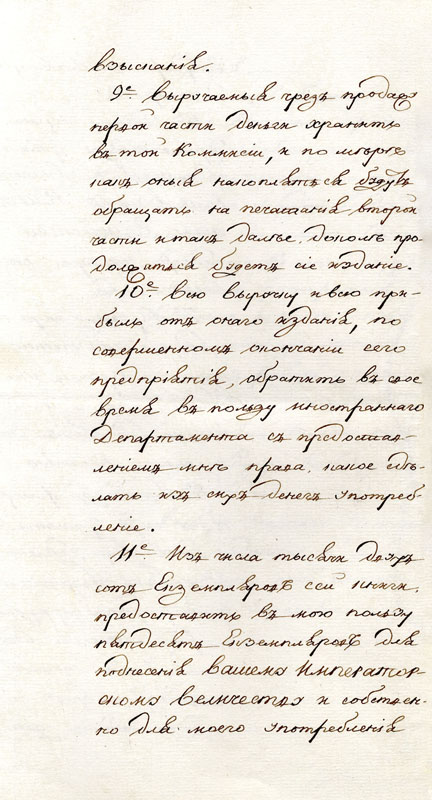 взысканія.
9е. Выручаемыя чрезъ продажу
первой части деньги хранить
въ той Коммисіи, и по мѣрѣ
какъ оныя накопляться будутъ
обращать на печатаніе второй
части и такъ далѣе, доколѣ про-
должиться будетъ сіе изданіе.
10е. Всю выручку и всю при-
быль отъ онаго изданія, по
совершенномъ окончаніи сего
предпріятія, обратить въ свое
время въ пользу иностраннаго
Департамента съ предостав-
леніемъ мнѣ права, какое сдѣ-
лать изъ сихъ денегъ употреб-
леніе.
11е. Изъ числа тысячи двухъ
сотъ Екземпляровъ сей книги,
предоставить въ мою пользу
пятдесятъ Екземпляровъ для
поднесенія вашему Император-
скому величеству и собствен-
но для моего употребленія